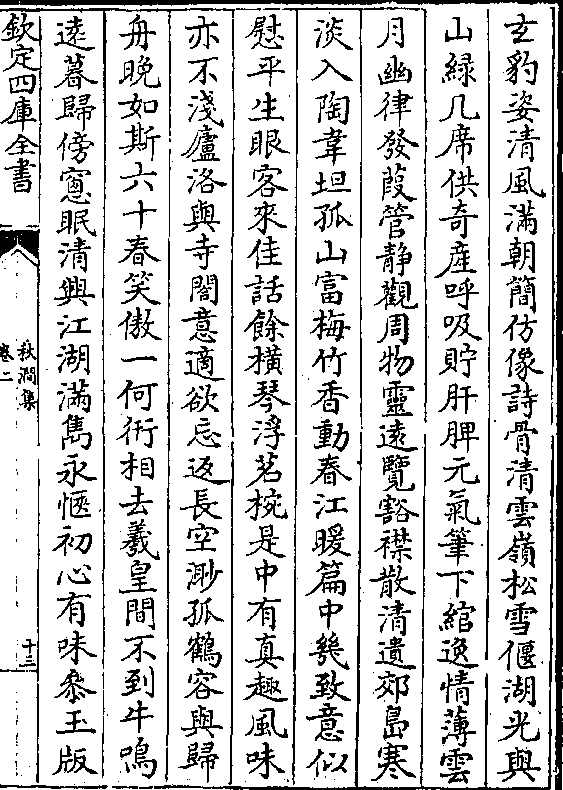 玄豹姿清風滿朝簡仿像詩骨清雲嶺松雪偃湖光與
山緑几席供奇産呼吸貯肝脾元氣筆下綰逸情薄雲
月幽律發葭管静觀周物靈逺覽豁襟散清遺郊島寒
淡入陶韋坦孤山富梅竹香動春江暖篇中㡬致意似
慰平生眼客來佳話餘横琴浮茗椀是中有真趣風味
亦不淺廬洛與寺閤意適欲忘返長空渺孤鶴容與歸
舟晩如斯六十春笑傲一何衎相去羲皇間不到牛鳴
逺暮歸傍窻眠清興江湖滿雋永愜初心有味叅玉版
欽定四庫全書
秋澗集
卷二
十三